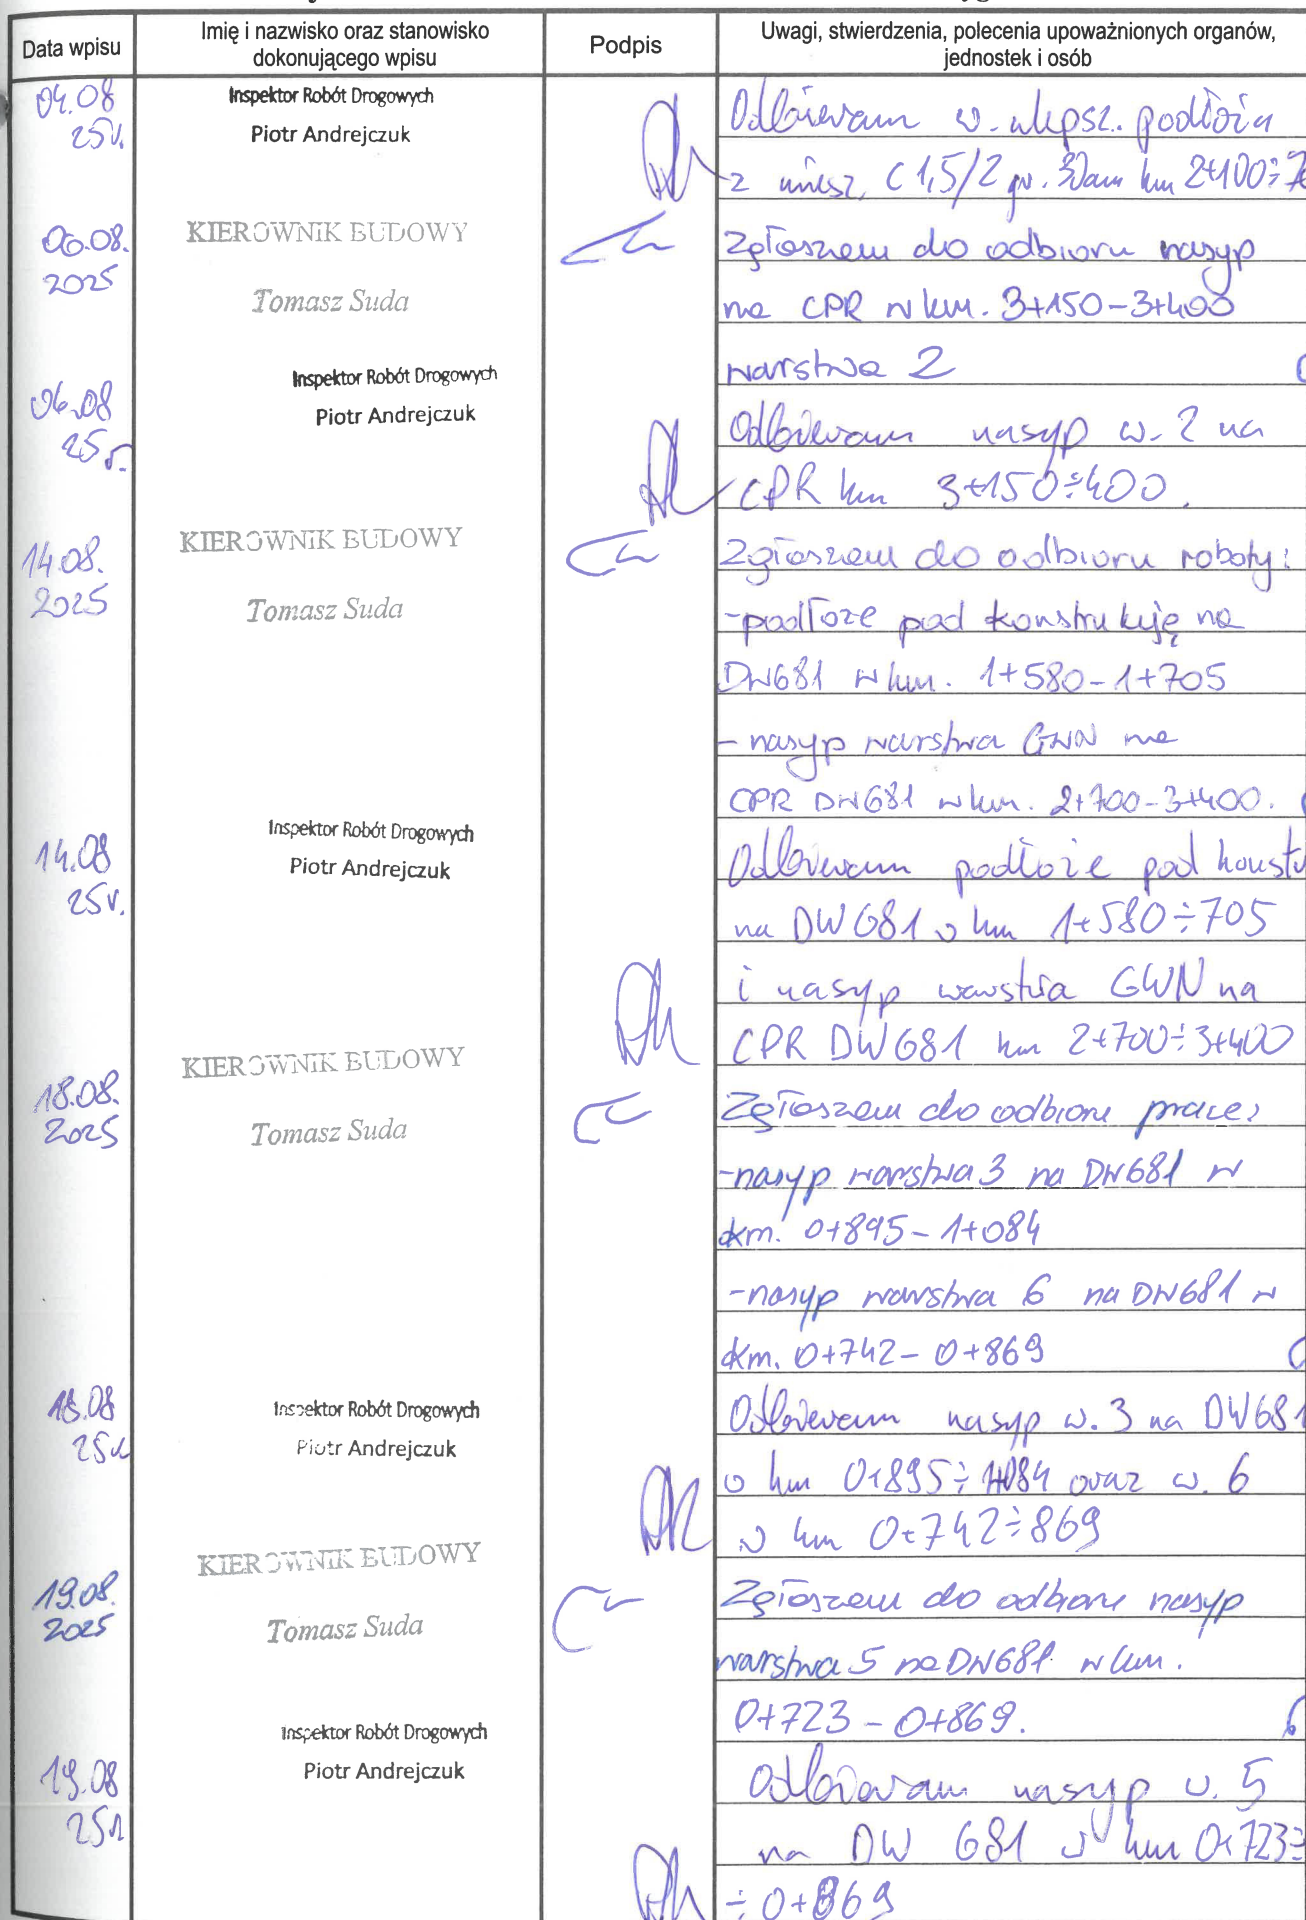 Data wpisu
Imię i nazwisko oraz stanowisko
dokonującego wpisu
Podpis
Uwagi, stwierdzenia, polecenia upoważnionych organów,
jednostek i osób
04.08
25r.
Inspektor Robót Drogowych
Piotr Andrejczuk
Odbieram w. ulepsz. podłoża
z miesz. C 1,5/2 gr. 30cm km 2+100÷
06.08.
2025
KIEROWNIK BUDOWY
Tomasz Suda
Zgłaszam do odbioru nasyp
na CPR w km. 3+150-3+400
warstwa 2
06.08
25r.
Inspektor Robót Drogowych
Piotr Andrejczuk
Odbieram nasyp w. 2 na
CPR km 3+150÷400.
14.08.
2025
KIEROWNIK BUDOWY
Tomasz Suda
Zgłaszam do odbioru roboty:
-podłoże pod konstrukję na
DW681 w km. 1+580-1+705
- nasyp warstwa GWN na
CPR DW681 w km. 2+700-3+400.
14.08
25r.
Inspektor Robót Drogowych
Piotr Andrejczuk
Odbieram podłoże pod konstr
na DW 681 w km 1+580÷705
i nasyp warstwa GWN na
CPR DW681 km 2+700÷3+400
18.08.
2025
KIEROWNIK BUDOWY
Tomasz Suda
Zgłaszam do odbioru prace:
-nasyp warstwa 3 na DW681 w
km. 0+895-1+084
-nasyp warstwa 6 na DW681 w
km. 0+742-0+869
18.08
25r
Inspektor Robót Drogowych
Piotr Andrejczuk
Odbieram nasyp w. 3 na DW681
w km 0+895÷1+084 oraz w. 6
w km 0+742÷869
19.08.
2025
KIEROWNIK BUDOWY
Tomasz Suda
Zgłaszam do odbioru nasyp
warstwa 5 na DW681 w km.
0+723-0+869.
19.08
25r
Inspektor Robót Drogowych
Piotr Andrejczuk
Odbieram nasyp w. 5
na DW 681 w km 0+723÷
÷0+869